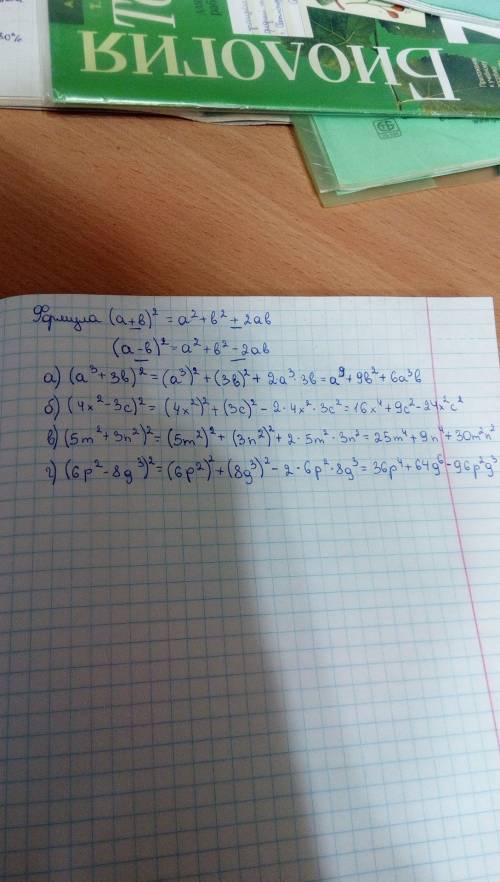 БИОЛОГИЯ
Формула (a+b)² = a²+b²+2ab
(a-b)² = a²+b²-2ab
а) (a³+3b)² = (a³)²+(3b)²+2·a³·3b = a⁹+9b²+6a³b
б) (4x²-3c)² = (4x²)²+(3c)²-2·4x²·3c² = 16x⁴+9c²-24x²c²
в) (5m²+3n²)² = (5m²)²+(3n²)²+2·5m²·3n² = 25m⁴+9n⁴+30m²n²
г) (6p²-8q³)² = (6p²)²+(8q³)²-2·6p²·8q³ = 36p⁴+64q⁶-96p²q³